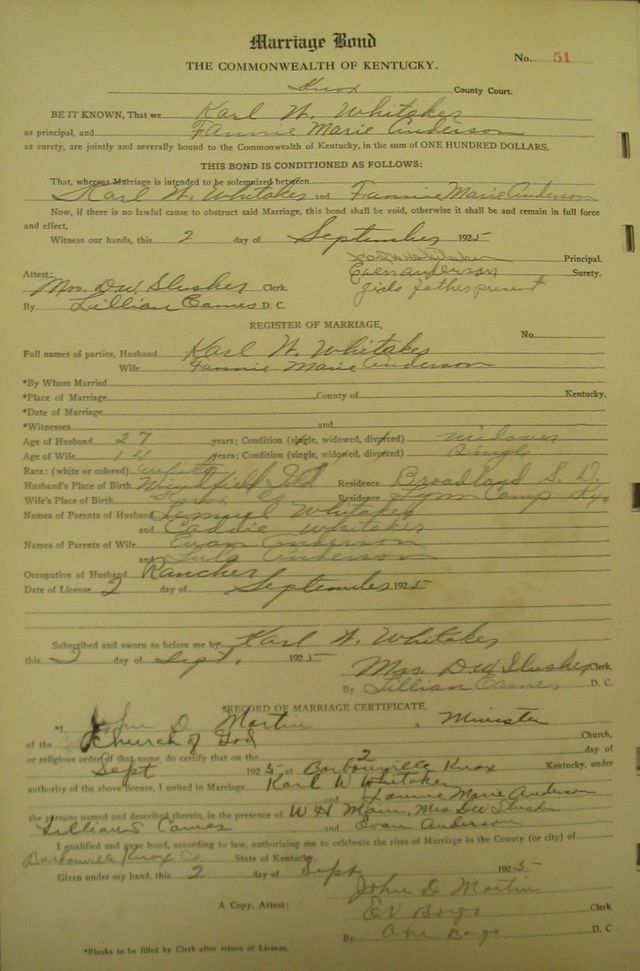 Marriage Bond
No. 51
THE COMMONWEALTH OF KENTUCKY.
Knox County Court.
BE IT KNOWN, That we Karl W. Whitaker
as principal, and Fannie Marie Anderson
as surety, are jointly and severally bound to the Commonwealth of Kentucky, in the sum of ONE HUNDRED DOLLARS.
THIS BOND IS CONDITIONED AS FOLLOWS:
That, whereas Marriage is intended to be solemnized between
Karl W. Whitaker and Fannie Marie Anderson
Now, if there is no lawful cause to obstruct said Marriage, this bond shall be void, otherwise it shall be and remain in full force
and effect,
Witness our hands, this 2 day of September 1925
Karl W Whitaker Principal.
Attest: Evan Anderson Surety.
Mrs. D.W. Slusher Clerk. girls father present
By Lillian Cames D. C.
REGISTER OF MARRIAGE,
No.
Full names of parties, Husband Karl W. Whitaker
Wife Fannie Marie Anderson
*By Whom Married
*Place of Marriage County of Kentucky.
*Date of Marriage
*Witnesses and
Age of Husband 27 years; Condition (single, widowed, divorced) widower
Age of Wife 14 years; Condition (single, widowed, divorced) Single
Race: (white or colored) white
Husband's Place of Birth Residence Broadland S. D.
Wife's Place of Birth Knox Co Residence Lynn Camp Ky
Names of Parents of Husband Lemuel Whitaker
and Caddie Whitaker
Names of Parents of Wife Evan Anderson
and Lula Anderson
Occupation of Husband Rancher
Date of License 2 day of September 1925
Subscribed and sworn to before me by Karl W. Whitaker
this 2 day of Sept. 1925
Mrs. D.W. Slusher Clerk.
By Lillian Cames D. C.
*RECORD OF MARRIAGE CERTIFICATE,
*I, John D Martin, Minister
of the Church of God Church,
or religious order of that name, do certify that on the 2 day of
Sept 1925 at Barbourville Knox Kentucky, under
authority of the above license, I united in Marriage Karl W Whitaker
and Fannie Marie Anderson
the persons named and described therein, in the presence of W H Main, Mrs DW Slusher
Lillian S Cames and Evan Anderson
I qualified and gave bond, according to law, authorizing me to celebrate the rites of Marriage in the County (or city) of
Barbourville Knox Co State of Kentucky.
Given under my hand, this 2 day of Sept 1925
John D Martin
A Copy. Attest: Clerk
By D. C.
*Blanks to be filled by Clerk after return of License.